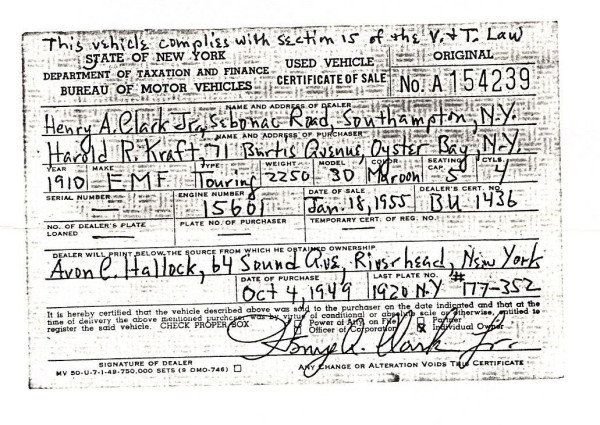 This vehicle complies with section 15 of the V. & T. Law
STATE OF NEW YORK
DEPARTMENT OF TAXATION AND FINANCE
BUREAU OF MOTOR VEHICLES
USED VEHICLE
CERTIFICATE OF SALE
ORIGINAL
No. A 154239
NAME AND ADDRESS OF DEALER
Henry A. Clark Jr., Sebonac Road, Southampton, N.Y.
NAME AND ADDRESS OF PURCHASER
Harold R. Kraft, 71 Burtis Avenue, Oyster Bay, N.Y.
YEAR MAKE TYPE WEIGHT MODEL COLOR SEATING CAP. CYLS.
1910 EMF Touring 2250 30 Maroon 5 4
SERIAL NUMBER ENGINE NUMBER DATE OF SALE DEALER'S CERT. NO.
15601 Jan. 18, 1955 BU 1436
NO. OF DEALER'S PLATE LOANED PLATE NO. OF PURCHASER TEMPORARY CERT. OF REG. NO.
DEALER WILL PRINT BELOW THE SOURCE FROM WHICH HE OBTAINED OWNERSHIP
Avon C. Hallock, 64 Sound Ave, Riverhead, New York
DATE OF PURCHASE LAST PLATE NO.
Oct 4, 1949 1920 N.Y # 177-352
It is hereby certified that the vehicle described above was sold to the purchaser on the date indicated and that at the
time of delivery the above mentioned purchaser was by virtue of conditional or absolute sale or otherwise, entitled to
register the said vehicle. CHECK PROPER BOX Power of Atty. on File Partner
Officer of Corporation Individual Owner
Henry A. Clark Jr.
SIGNATURE OF DEALER
MV 50-U-7-1-49-750,000 SETS (9 OMO-746) ANY CHANGE OR ALTERATION VOIDS THIS CERTIFICATE